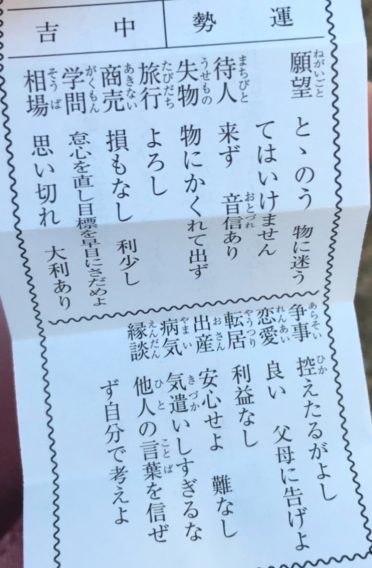 運勢 中吉
ねがいごと
願望 とゝのう 物に迷う
てはいけません
まちびと おとづれ
待人 来ず 音信あり
うせもの
失物 物にかくれて出ず
たびだち
旅行 よろし
あきない
商売 損もなし 利少し
がくもん
学問 怠心を直し目標を早目にさだめよ
そうば
相場 思い切れ 大利あり
あらそい ひか
争事 控えたるがよし
れんあい
恋愛 良い 父母に告げよ
やうつり
転居 利益なし
おさん
出産 安心せよ 難なし
やまい きづか
病気 気遣いしすぎるな
えんだん ひと ことば
縁談 他人の言葉を信ぜ
ず自分で考えよ